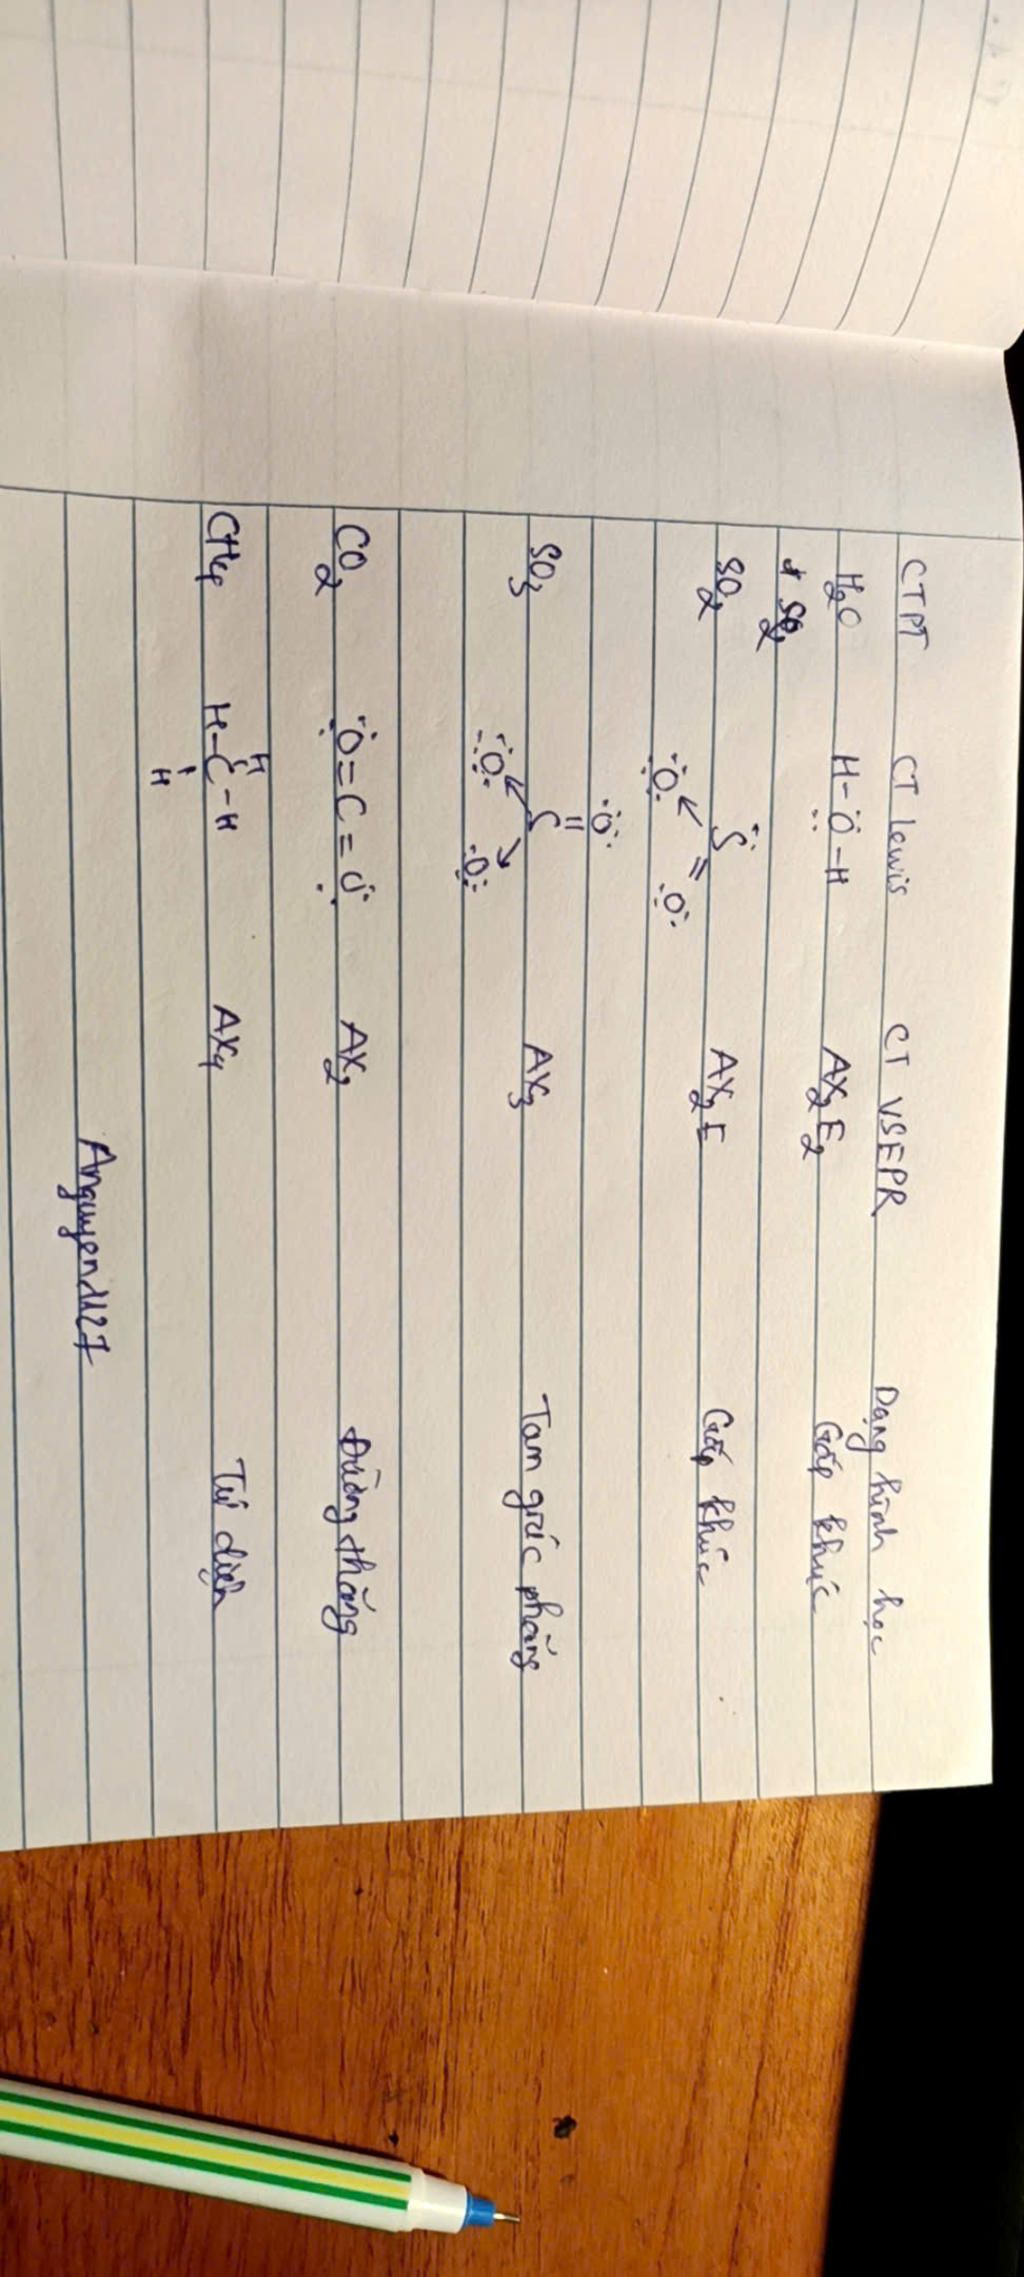 CTPT CT lewis CT VSEPR Dạng hình học
H₂O H-Ö-H AX₂E₂ Gấp khúc
SO₂ S O O AX₂E Gấp khúc
O
SO₃ S AX₃ Tam giác phẳng
O O
CO₂ O=C=O AX₂ Đường thẳng
H
CH₄ H-C-H AX₄ Tứ diện
H